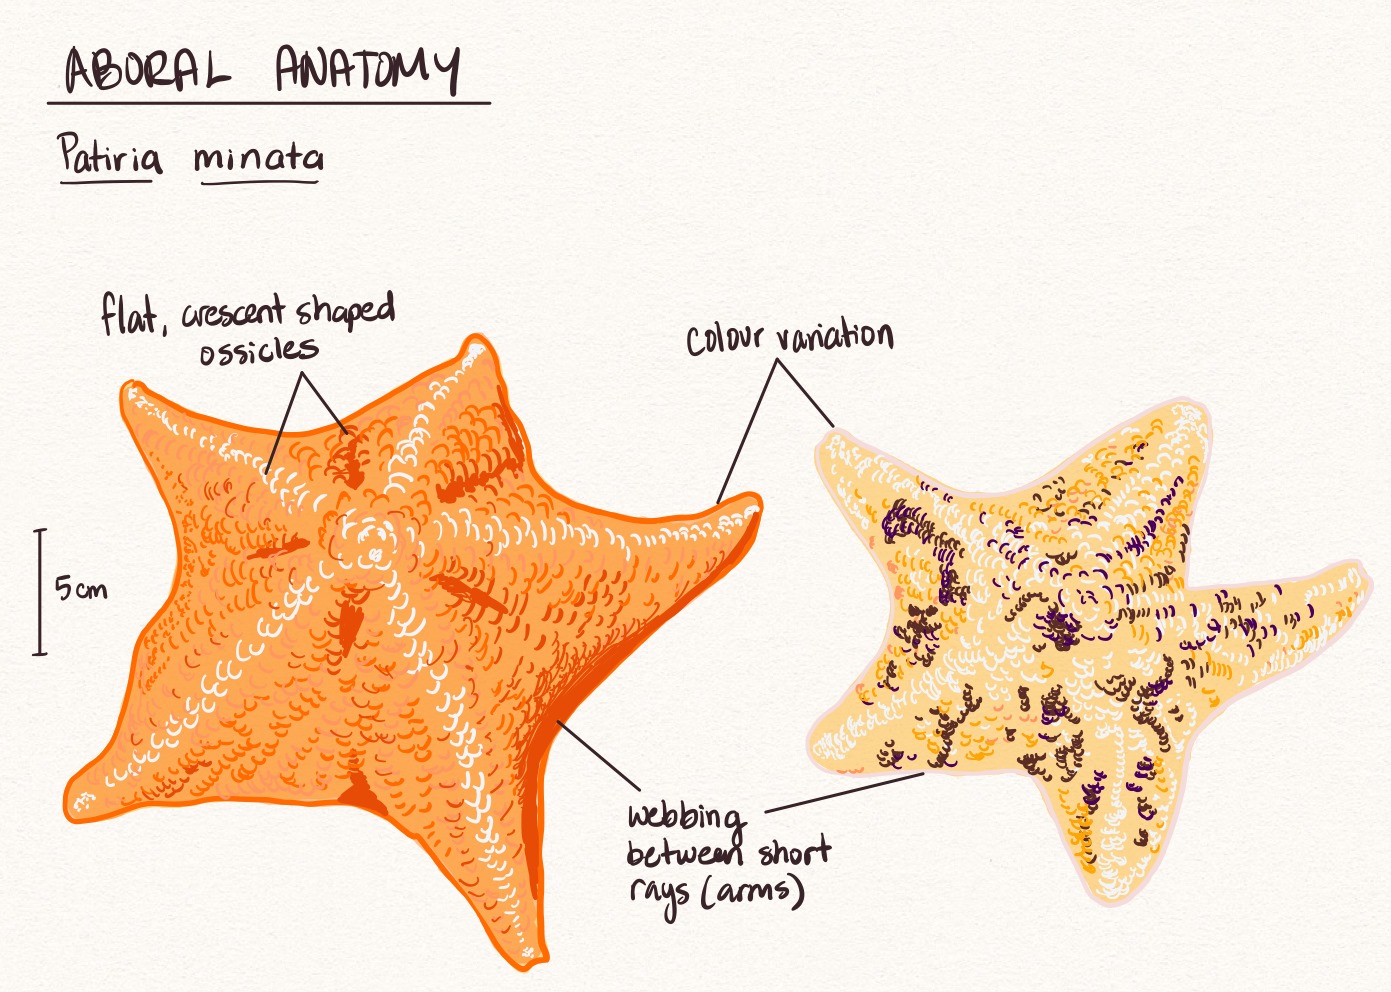 ABORAL ANATOMY
Patiria minata
flat, crescent shaped
ossicles
colour variation
5cm
webbing
between short
rays (arms)